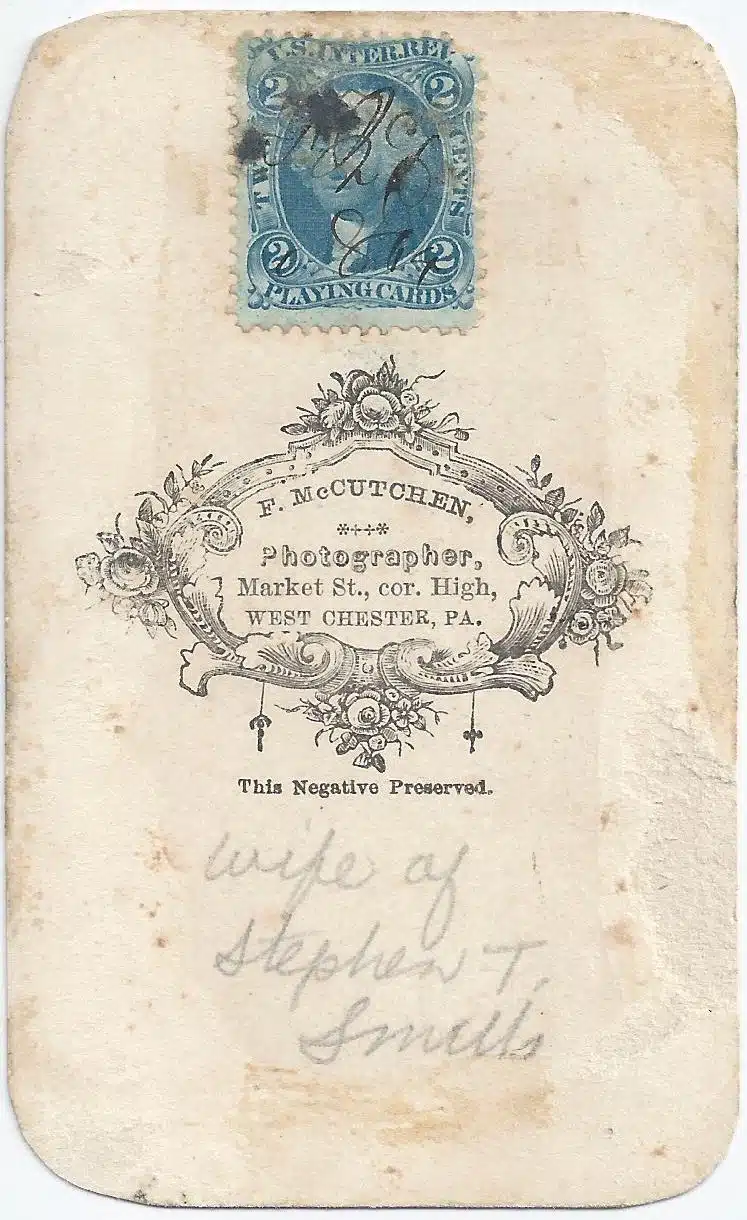 U.S. INTER. REV.
2 2
TWO CENTS
2 2
PLAYING CARDS
F. McCUTCHEN,
Photographer,
Market St., cor. High,
WEST CHESTER, PA.
This Negative Preserved.
wife of
Stephen T.